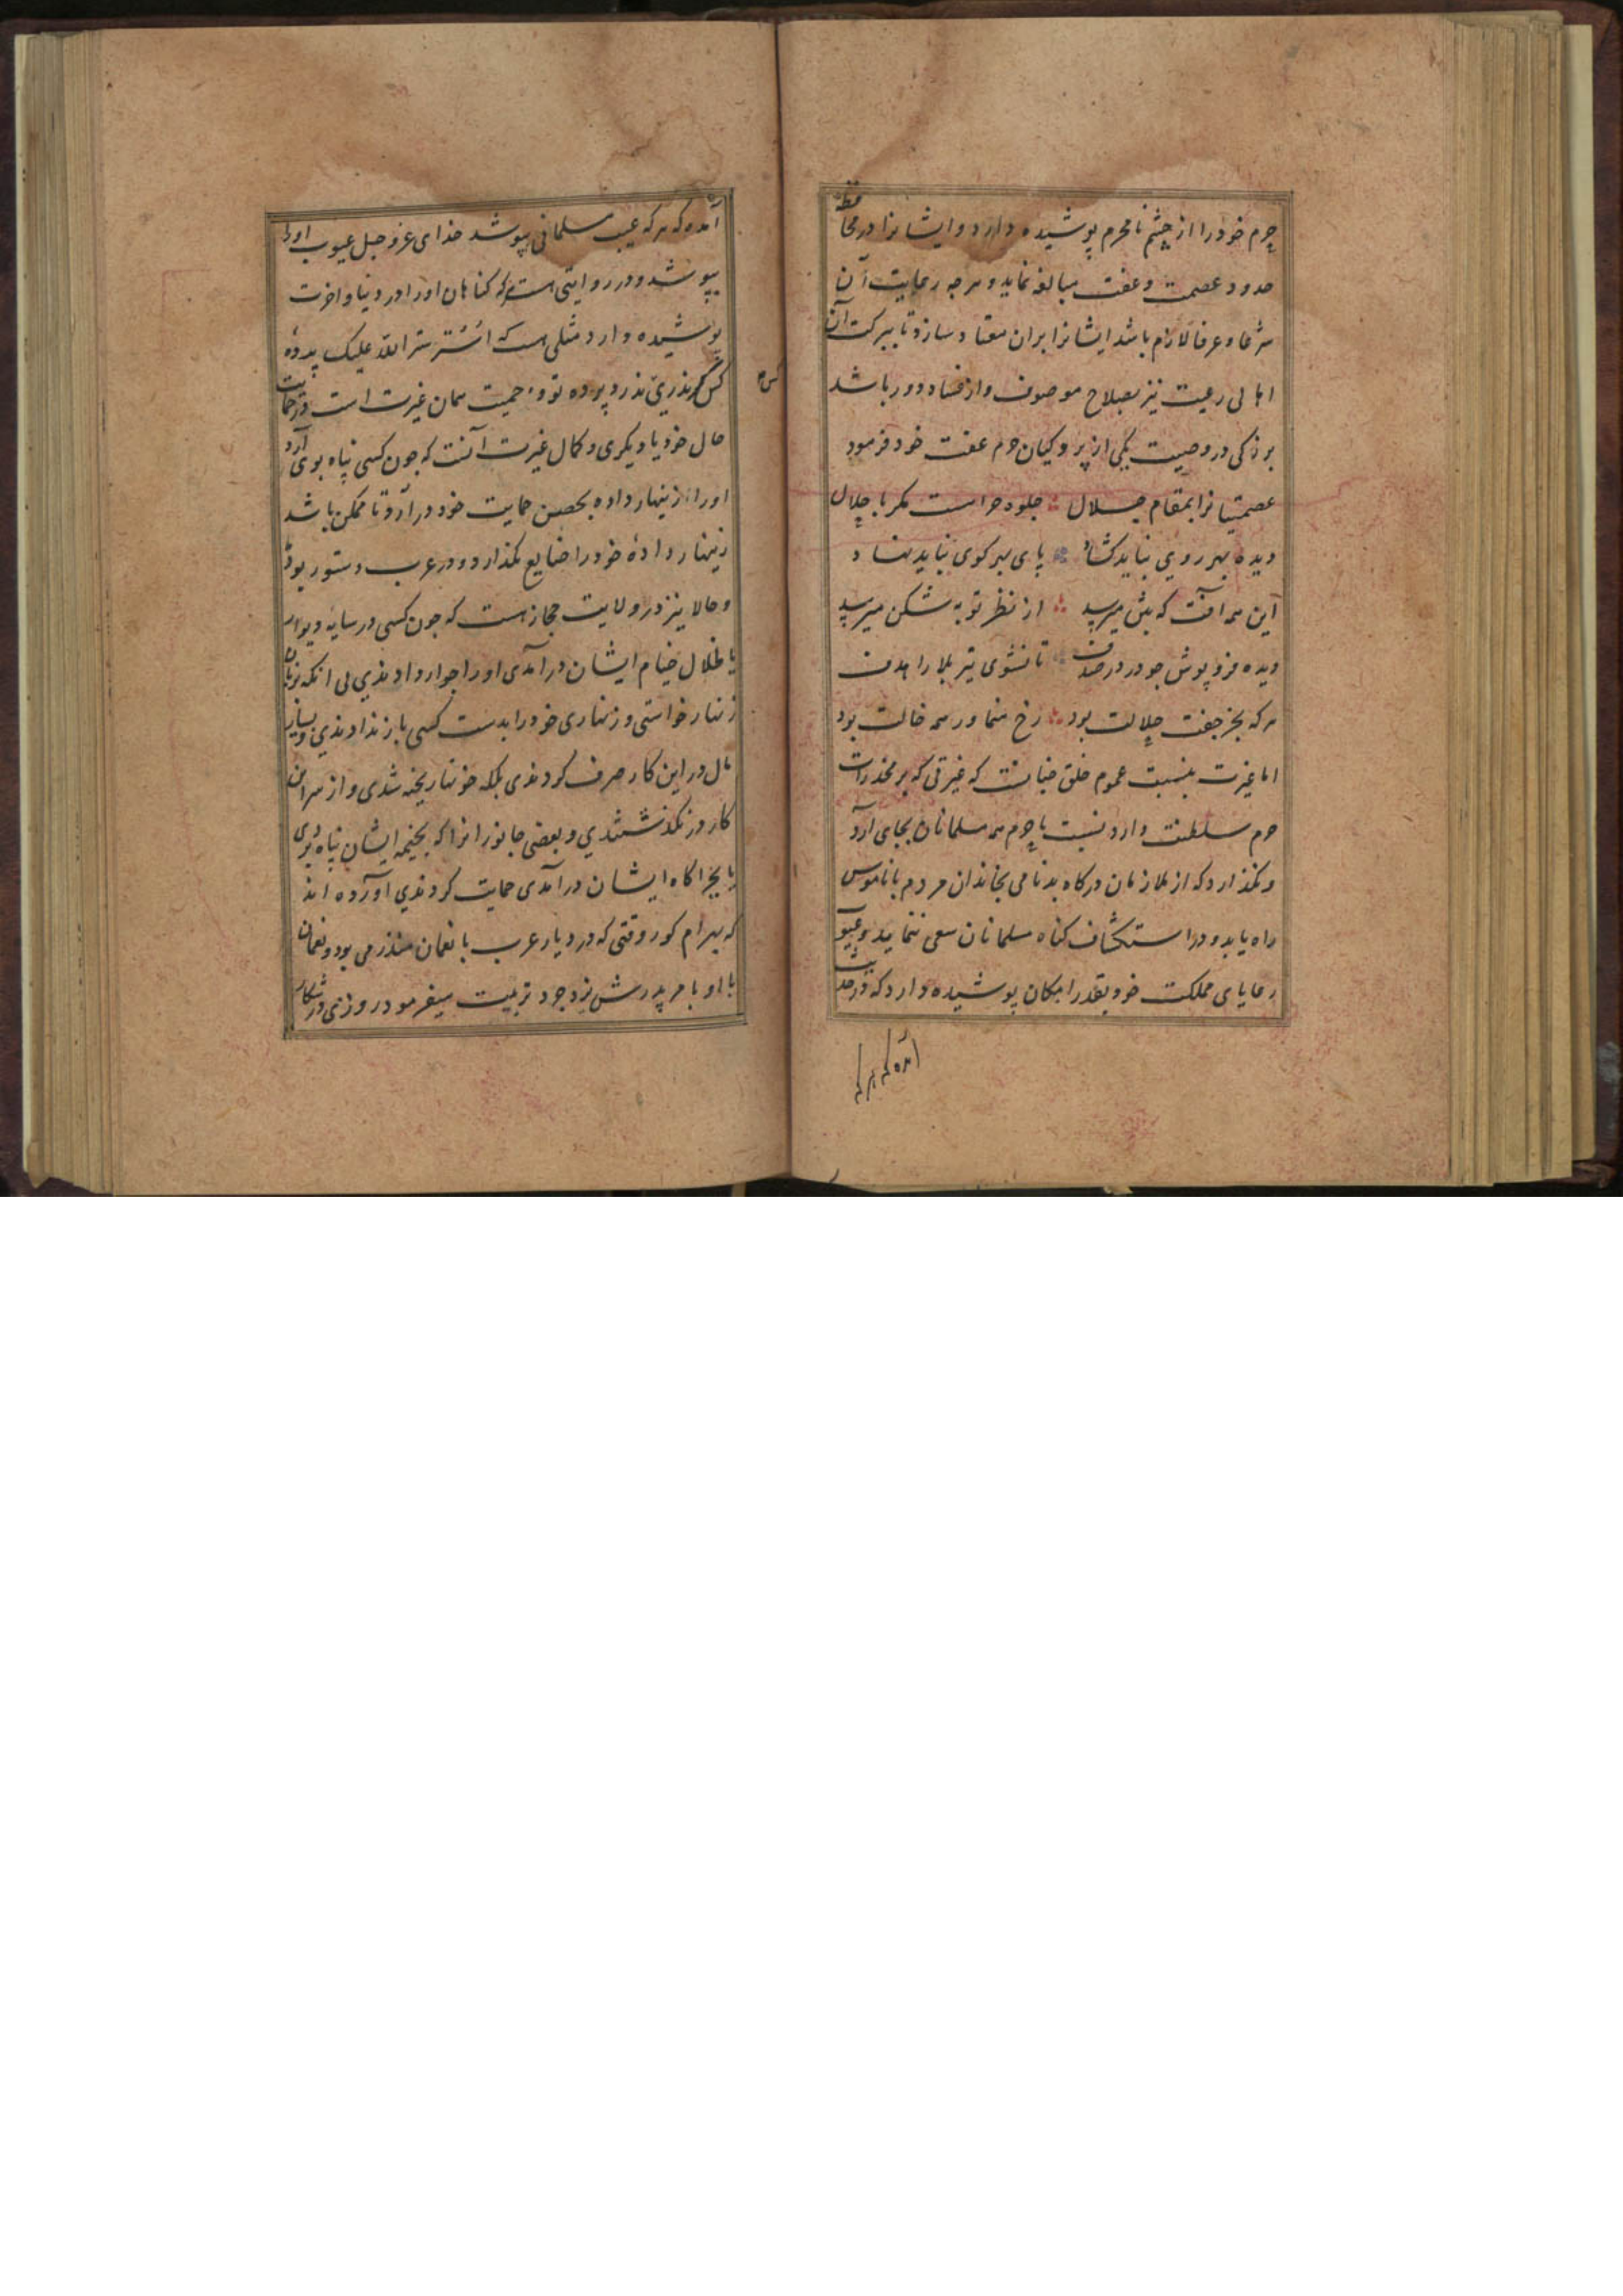 حرم خود را از چشم نامحرم پوشیده دارد و ایشانرا در محافظت
حدود عصمت و عفت مبالغه نماید و هرچه رعایت آن
شرعا و عرفا لازم باشد ایشانرا بران معتاد سازد تا ببرکت آن
اهالی رعیت نیز بصلاح موصوف و از فساد دور باشد
بزرکی در وصیت یکی از پردکیان حرم عفت خود فرمود
عصمتیانرا بمقام جلال جلوه حرامست مکر با حلال
دیده بهر روی نباید کشاد پای بهر کوی نباید نهاد
این همه آفت که بتن میرسد از نظر توبه شکن میرسد
دیده فروپوش چو در در صدف تا نشوی تیر بلا را هدف
هر که بجز جفت حلالت بود رخ منما ور همه خالت بود
اما غیرت بنسبت عموم خلق چنانست که غیرتی که بر مخدرات
حرم سلطنت دارد نسبت با حرم همه مسلمانان بجای آرد
و نکذارد که از ملازمان درکاه بدنامی بخاندان مردم با ناموس
راه یابد و در استکشاف کناه مسلمانان سعی ننماید و عیوب
رعایای مملکت خود بقدر امکان پوشیده دارد که در حدیث
آمده که هرکه
آمده که هر که عیب مسلمانی بپوشد خدای عز و جل عیوب او را
بپوشد و در روایتی هست که کناهان او را در دنیا و اخرت
پوشیده دارد مثلی هست که اُستُر ستر الله علیک پرده
کس مدری ندرد پرده تو و حمیت همان غیرت است در حمایت
حال خود یا دیکری و کمال غیرت آنست که چون کسی پناه بوی آرد
او را زینهار داده بحصن حمایت خود درآرد و تا ممکن باشد
زینهار دادهٔ خود را ضایع نکذارد و در عرب دستور بود
و حالا نیز در ولایت حجاز هست که چون کسی در سایه دیوار
یا ظلال خیام ایشان درآمدی او را جوار دادندی بی انکه بزبان
زنهار خواستی و زنهاری خود را بدست کسی باز ندادندی و بسیار
مال در این کار صرف کردندی بلکه خونها ریخته شدی و از سر این
کار در نکذشتندی و بعضی جانورانرا که بخیمه ایشان پناه بردی
یا بچراکاه ایشان درآمدی حمایت کردندی آورده اند
که بهرام کور وقتی که در دیار عرب با نعمان منذر می بود و نعمان
با او بامر پدرش یزدجرد تربیت میفرمود روزی در شکار